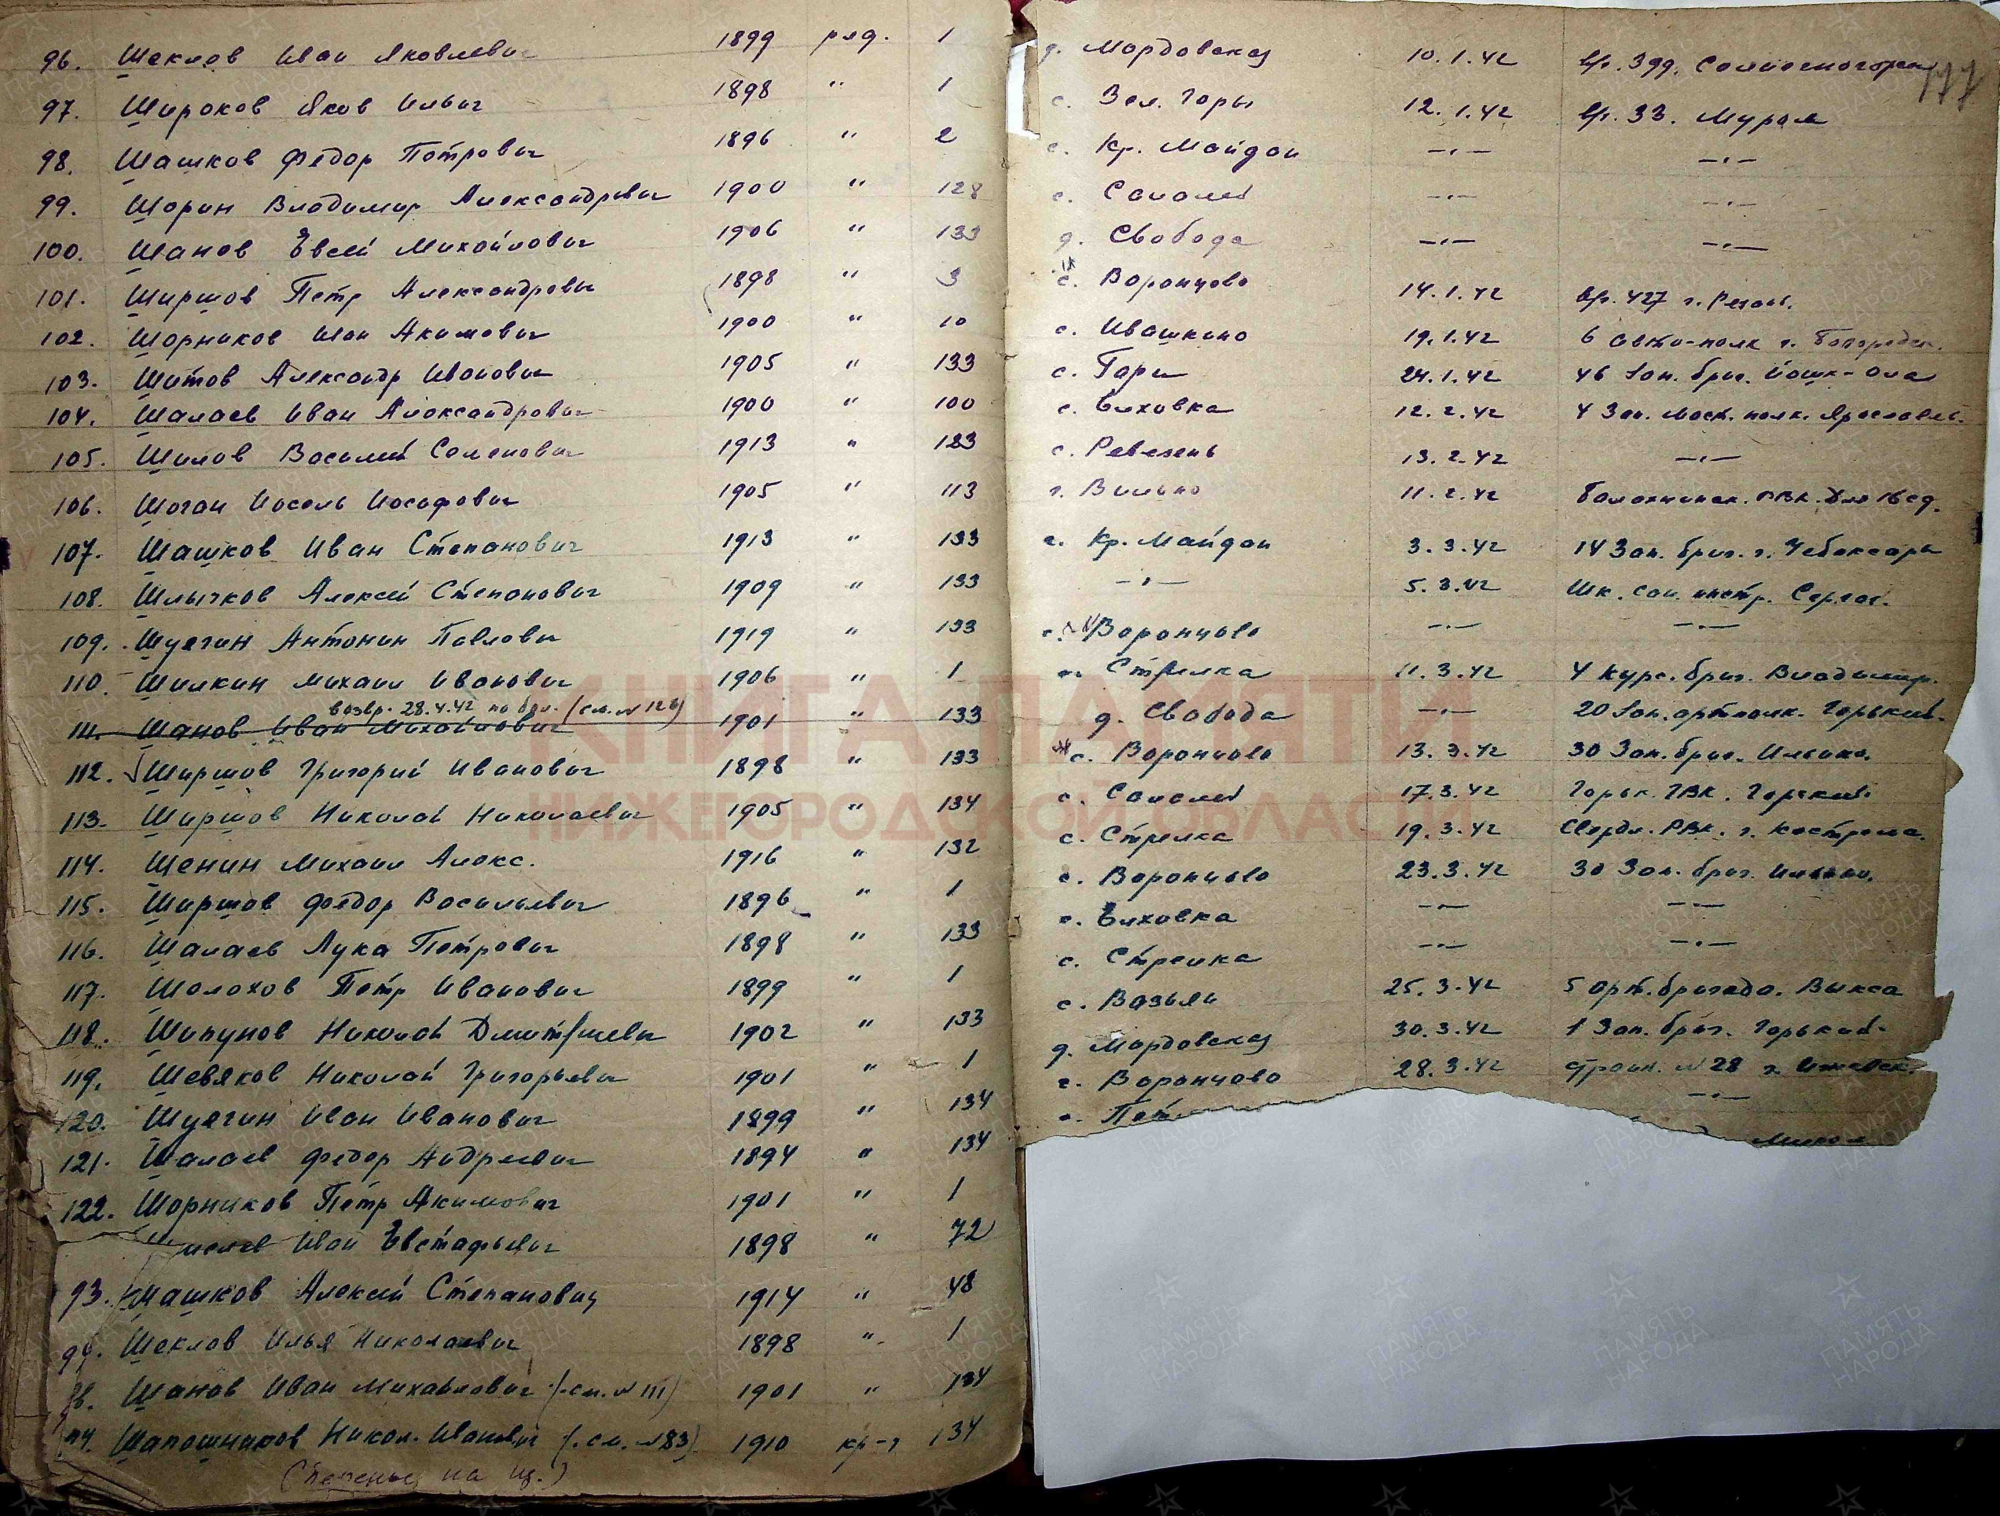 96. Шеклов Иван Яковлевич 1899 ряд. 1 д. Мордовская 10.1.42 вч. 399. Солнечногорск 177
97. Широков Яков Ильич 1898 " 1 с. Зел. Горы 12.1.42 вч. 33. Муром
98. Шашков Федор Петрович 1896 " 2 с. Кр. Майдан —"— —"—
99. Шорин Владимир Александрович 1900 " 128 с. Саполей —"— —"—
100. Шанов Евсей Михайлович 1906 " 133 д. Свобода —"— —"—
101. Ширшов Петр Александрович 1898 " 3 с. Воронцово 14.1.42 вч. 427 г.
102. Шорников Иван Акимович 1900 " 10 с. Ивашкино 19.1.42 6 авто-полк г.
103. Шитов Александр Иванович 1905 " 133 с. Гари 24.1.42 46 Зап. бриг. Йошк-Ола
104. Шалаев Иван Александрович 1900 " 100 с. Елховка 12.2.42 4 Зап. полк. Ярославль.
105. Шилов Василий Семенович 1913 " 123 с. Ревезень 13.2.42 —"—
106. Шоган Иосель Иосифович 1905 " 113 г. Вильно 11.2.42 Балахнинск. РВК.
107. Шашков Иван Степанович 1913 " 133 с. Кр. Майдан 3.3.42 14 Зап. бриг. г. Чебоксары
108. Шлычков Алексей Степанович 1909 " 133 —"— 5.3.42 Шк. сан. инстр. Сергач.
109. Шуягин Антонин Павлович 1919 " 133 с. Воронцово —"— —"—
110. Шилкин Михаил Иванович 1906 " 1 с. Стрелка 11.3.42 4 Курс. бриг. Владимир.
возвр. 28.4.42 по (см. № 126)
111. Шанов Иван Михайлович 1901 " 133 д. Свобода —"— 20 Зап. артполк. Горький.
112. Ширшов Григорий Иванович 1898 " 133 с. Воронцово 13.3.42 30 Зап. бриг. Ильино.
113. Ширшов Николай Николаевич 1905 " 134 с. Саполей 17.3.42 Горьк. ГВК. Горький.
114. Шенин Михаил Алекс. 1916 " 132 с. Стрелка 19.3.42 Свердл. РВК. г. Кострома.
115. Ширшов Федор Васильевич 1896 " 1 с. Воронцово 23.3.42 30 Зап. бриг. Ильино.
116. Шалаев Лука Петрович 1898 " 133 с. Елховка —"— —"—
117. Шолохов Петр Иванович 1899 " 1 с. Стрелка —"— —"—
118. Шипунов Николай Дмитриевич 1902 " 133 с. Вазьян 25.3.42 5 арт. бригада. Выкса
119. Шевяков Николай Григорьевич 1901 " 1 д. Мордовская 30.3.42 1 Зап. бриг. Горький.
120. Шуягин Иван Иванович 1899 " 134 с. Воронцово 28.3.42 № 28 г. Ижевск.
121. Шалаев Федор Андреевич 1894 " 134 с. Пет —"—
122. Шорников Петр Акимович 1901 " 1
Иван Евстафьевич 1898 " 72
93. Шашков Алексей Степанович 1914 " 48
94. Шеклов Илья Николаевич 1898 " 1
Шанов Иван Михайлович (см. № 111) 1901 " 134
Шапошников Никол. Иванович (см. № 83) 1910 кр-ц 134
на Щ.)
КНИГА ПАМЯТИ
НИЖЕГОРОДСКОЙ ОБЛАСТИ
ПАМЯТЬ НАРОДА